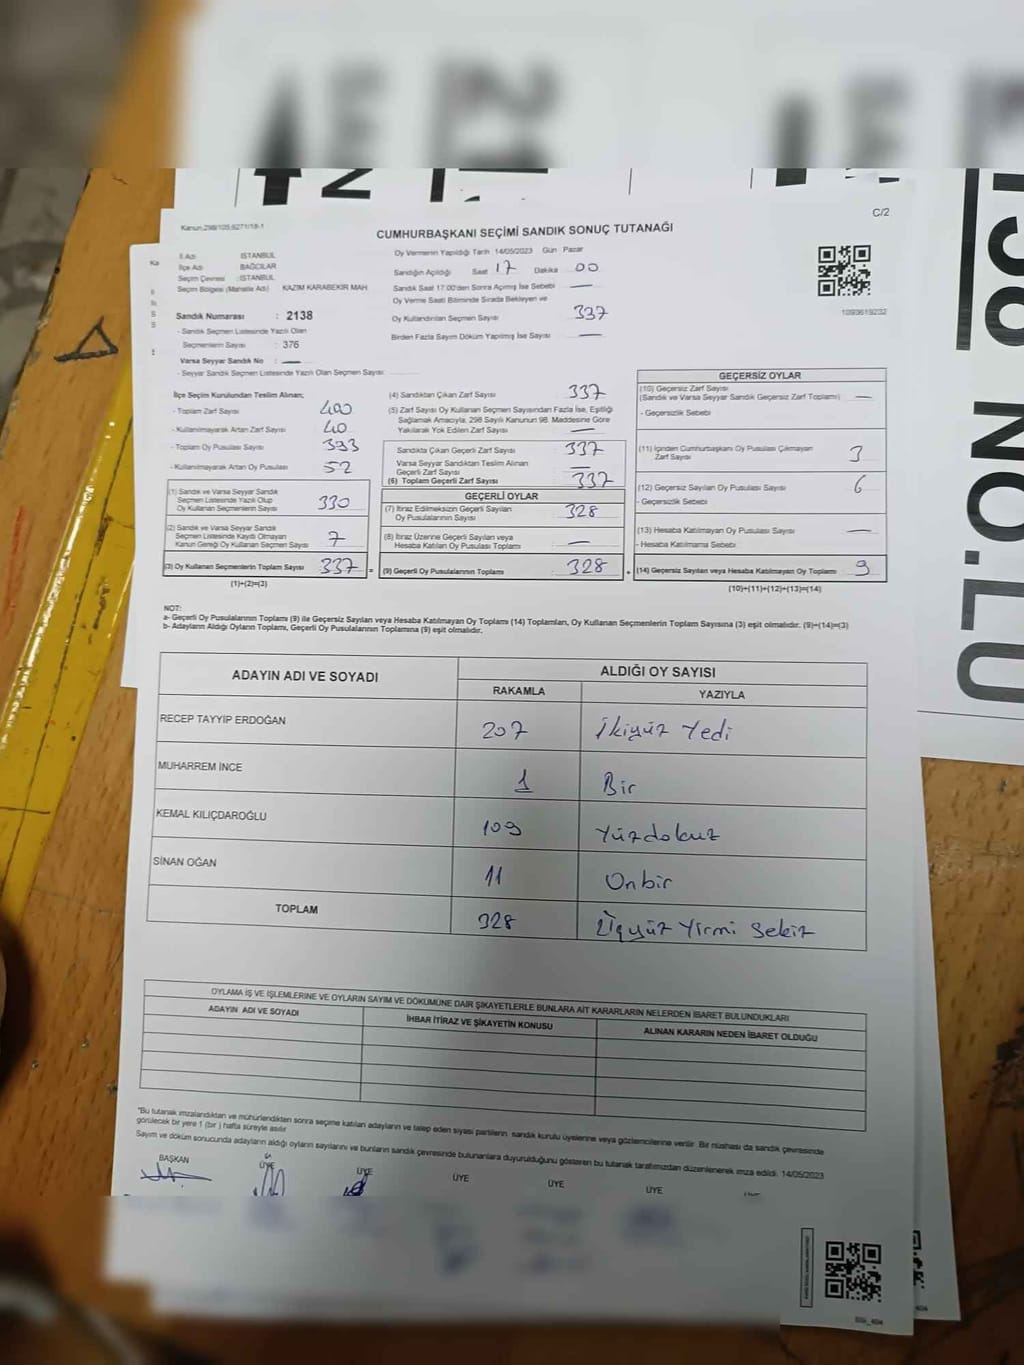 C/2
Kanun,298/105,6271/18-1
CUMHURBAŞKANI SEÇİMİ SANDIK SONUÇ TUTANAĞI
İl Adı İSTANBUL
İlçe Adı BAĞCILAR
Seçim Çevresi :İSTANBUL
Seçim Bölgesi (Mahalle Adı) KAZIM KARABEKİR MAH
Sandık Numarası : 2138
- Sandık Seçmen Listesinde Yazılı Olan
Seçmenlerin Sayısı : 376
Varsa Seyyar Sandık No : —
- Seyyar Sandık Seçmen Listesinde Yazılı Olan Seçmen Sayısı
Oy Vermenin Yapıldığı Tarih 14/05/2023 Gün Pazar
Sandığın Açıldığı Saat 17 Dakika 00
Sandık Saat 17:00'den Sonra Açımış İse Sebebi —
Oy Verme Saati Bitiminde Sırada Bekleyen ve
Oy Kullandırılan Seçmen Sayısı 337
Birden Fazla Sayım Döküm Yapılmış İse Sayısı —
1093619232
İlçe Seçim Kurulundan Teslim Alınan;
- Toplam Zarf Sayısı 400
- Kullanılmayarak Artan Zarf Sayısı 40
- Toplam Oy Pusulası Sayısı 393
- Kullanılmayarak Artan Oy Pusulası 52
(1) Sandık ve Varsa Seyyar Sandık
Seçmen Listesinde Yazılı Olup
Oy Kullanan Seçmenlerin Sayısı 330
(2) Sandık ve Varsa Seyyar Sandık
Seçmen Listesinde Kaydı Olmayan
Kanun Gereği Oy Kullanan Seçmen Sayısı 7
(3) Oy Kullanan Seçmenlerin Toplam Sayısı 337 =
(1)+(2)=(3)
(4) Sandıktan Çıkan Zarf Sayısı 337
(5) Zarf Sayısı Oy Kullanan Seçmen Sayısından Fazla İse, Eşitliği
Sağlamak Amacıyla, 298 Sayılı Kanunun 98. Maddesine Göre
Yakılarak Yok Edilen Zarf Sayısı —
Sandıkta Çıkan Geçerli Zarf Sayısı 337
Varsa Seyyar Sandıktan Teslim Alınan
Geçerli Zarf Sayısı —
(6) Toplam Geçerli Zarf Sayısı 337
GEÇERLİ OYLAR
(7) İtiraz Edilmeksizin Geçerli Sayılan
Oy Pusulalarının Sayısı 328
(8) İtiraz Üzerine Geçerli Sayılan veya
Hesaba Katılan Oy Pusulası Toplamı —
(9) Geçerli Oy Pusulalarının Toplamı 328 +
GEÇERSİZ OYLAR
(10) Geçersiz Zarf Sayısı
(Sandık ve Varsa Seyyar Sandık Geçersiz Zarf Toplamı) —
- Geçersizlik Sebebi
(11) İçinden Cumhurbaşkanı Oy Pusulası Çıkmayan
Zarf Sayısı 3
(12) Geçersiz Sayılan Oy Pusulası Sayısı 6
- Geçersizlik Sebebi
(13) Hesaba Katılmayan Oy Pusulası Sayısı —
- Hesaba Katılmama Sebebi
(14) Geçersiz Sayılan veya Hesaba Katılmayan Oy Toplamı 9
(10)+(11)+(12)+(13)=(14)
NOT:
a- Geçerli Oy Pusulalarının Toplamı (9) ile Geçersiz Sayılan veya Hesaba Katılmayan Oy Toplamı (14) Toplamları, Oy Kullanan Seçmenlerin Toplam Sayısına (3) eşit olmalıdır. (9)+(14)=(3)
b- Adayların Aldığı Oyların Toplamı, Geçerli Oy Pusulalarının Toplamına (9) eşit olmalıdır.
ADAYIN ADI VE SOYADI ALDIĞI OY SAYISI
RAKAMLA YAZIYLA
RECEP TAYYİP ERDOĞAN 207 İkiyüz Yedi
MUHARREM İNCE 1 Bir
KEMAL KILIÇDAROĞLU 109 Yüzdokuz
SİNAN OĞAN 11 Onbir
TOPLAM 328 Üçyüz Yirmi Sekiz
OYLAMA İŞ VE İŞLEMLERİNE VE OYLARIN SAYIM VE DÖKÜMÜNE DAİR ŞİKAYETLERLE BUNLARA AİT KARARLARIN NELERDEN İBARET BULUNDUKLARI
ADAYIN ADI VE SOYADI İHBAR İTİRAZ VE ŞİKAYETİN KONUSU ALINAN KARARIN NEDEN İBARET OLDUĞU
"Bu tutanak imzalandıktan ve mühürlendikten sonra seçime katılan adayların ve talep eden siyasi partilerin sandık kurulu üyelerine veya gözlemcilerine verilir. Bir nüshası da sandık çevresinde
görülecek bir yere 1 (bir ) hafta süreyle asılır.
Sayım ve döküm sonucunda adayların aldığı oyların sayılarını ve bunların sandık çevresinde bulunanlara duyurulduğunu gösteren bu tutanak tarafımızdan düzenlenerek imza edildi. 14/05/2023
BAŞKAN ÜYE ÜYE ÜYE ÜYE ÜYE